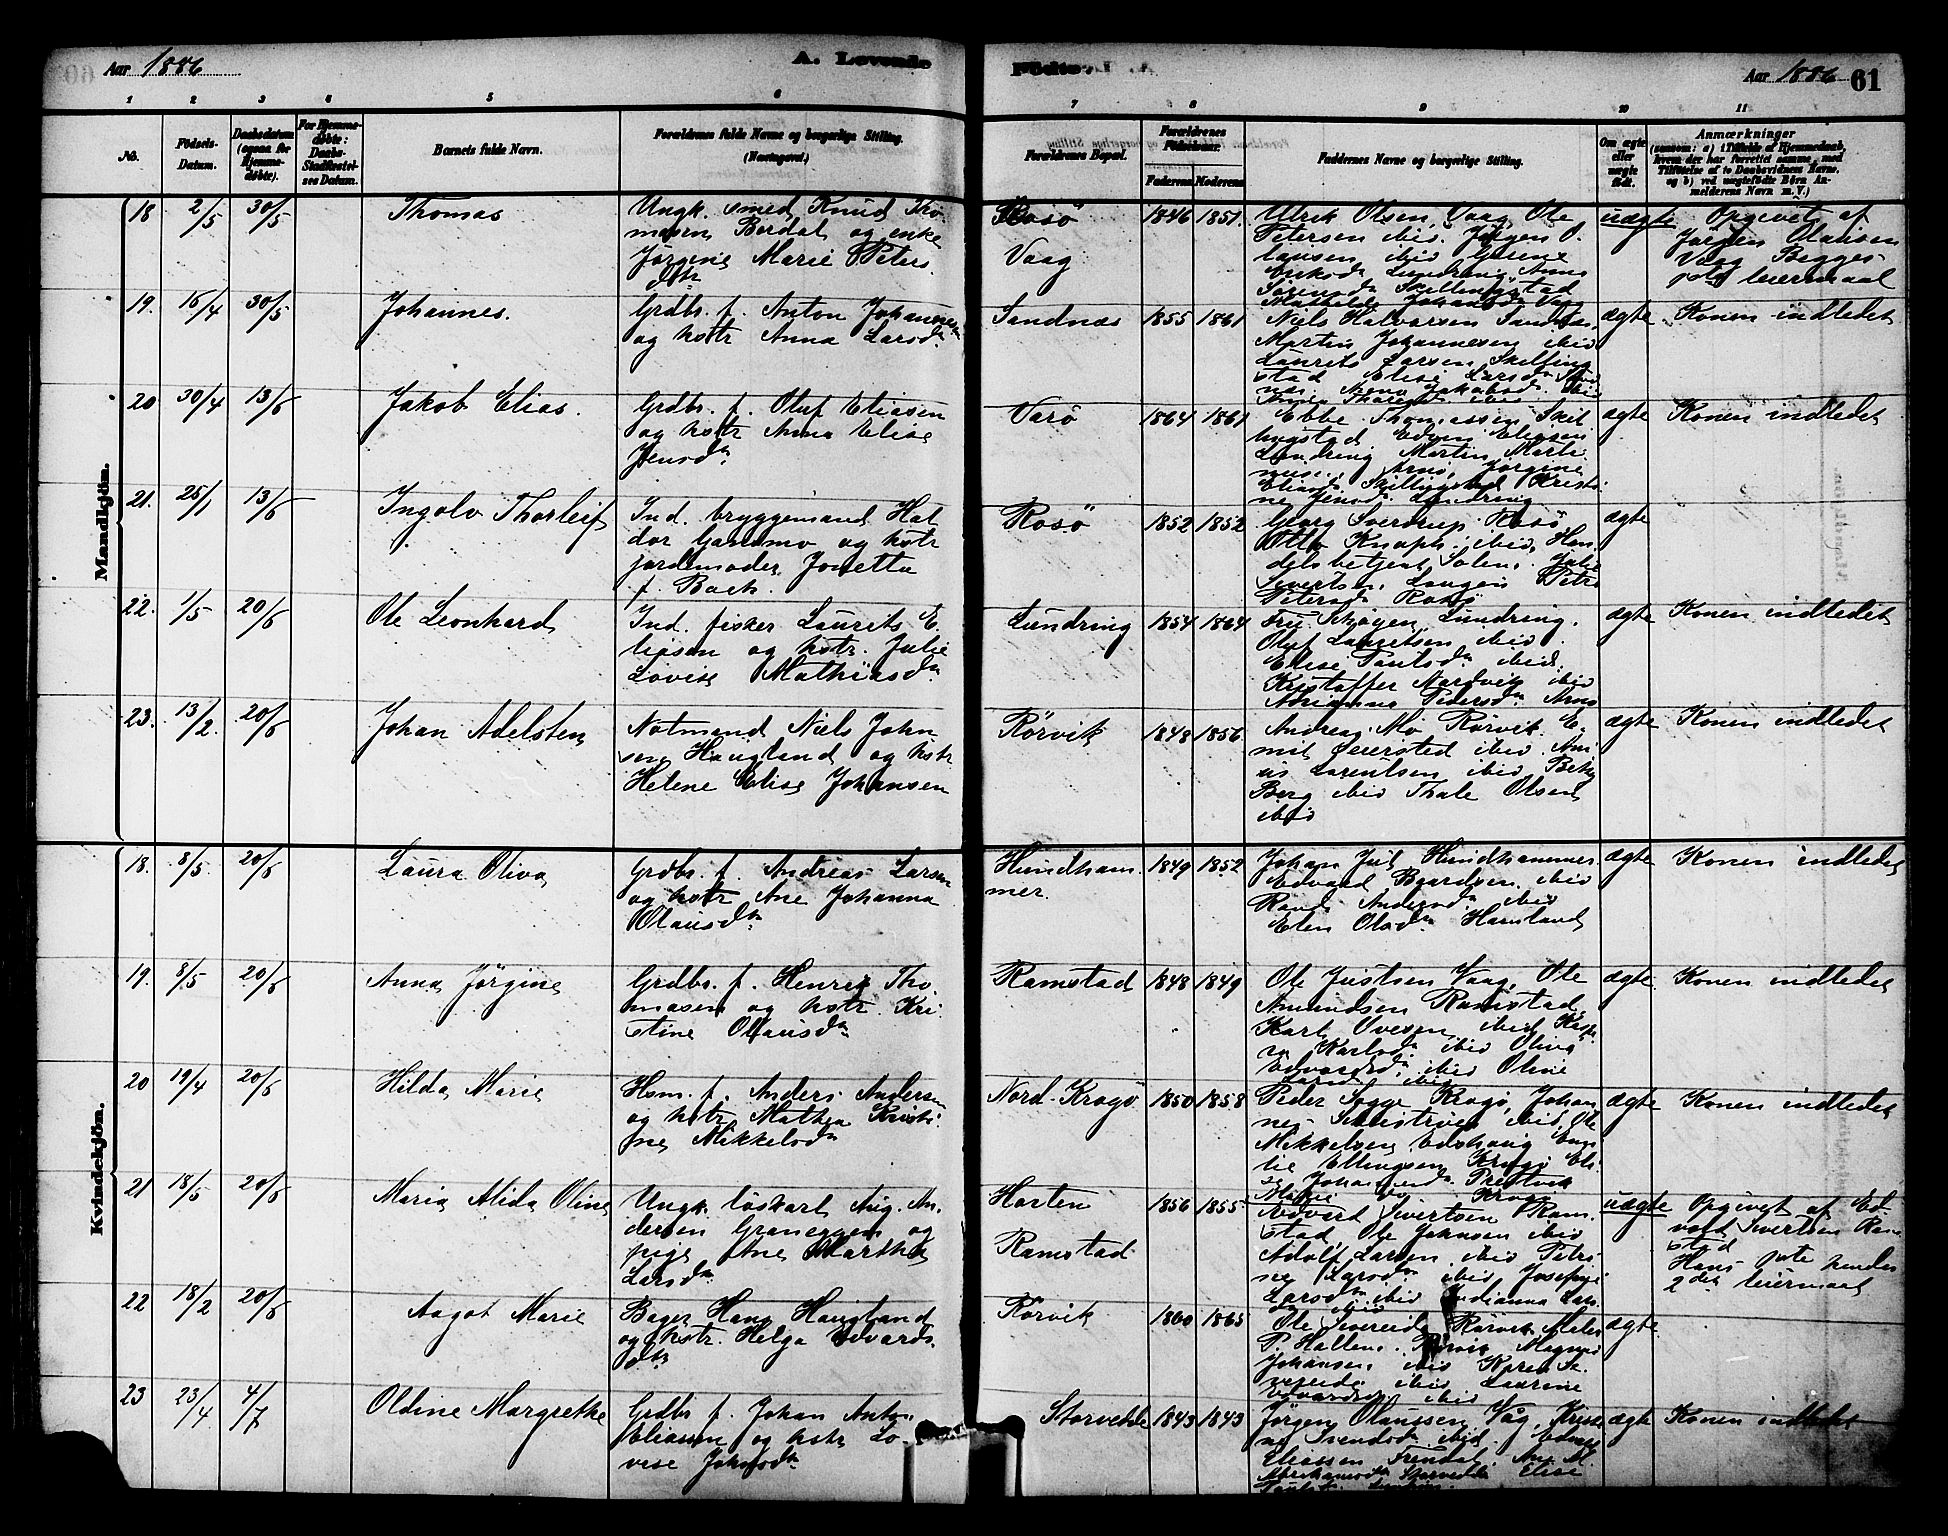 Aar 1886 A. Levende
Födte. Aar 1886 61
1 2 3 4 5 6 7 8 9 10 11
No.
Födsels-Datum.
Daabsdatum (ogsaa for Hjemme-döbte).
For Hjemme-döbte: Daabs-Stadfæstel-ses Datum.
Barnets fulde Navn.
Forældrenes fulde Navne og borgerlige Stilling.
Forældrenes Bopæl.
Forældrenes Födselsaar.
Faderens Moderens
Faddernes Navne og borgerlige Stilling.
Om ægte eller uægte född.
Anmærkninger
Mandkjön.
18 2/5 30/5 Thomas
Ungk. smed Knud Tho
masen Berdal og enke
Jørgine Marie Peters
dtr
Rosö
Vaag
1846 1851
Ulrik Olsen, Vaag, Ole
Petersen ibid. Jørgen O.
lausen ibid
uægte
Opgivet af
Jørgen Olausen
Vaag Begges
leiermaal
19. 15/4 30/5 Johannes.
Grdbr. f. Anton Johannesen
og hstr Anna Larsdtr
Sandnæs 1855 1861
Niels Halvorsen Sandnæs
Martin Johannesen ibid
Laurits Larsen Skilling
stad Elise Larsdtr
ægte Konen indledet
20 30/4 13/6 Jakob Elias.
Grdbr. f. Oluf Eliasen
og hstr Anna Elise
Jensdtr
Varö 1864 1861
Ebbe Thomassen Skil
lingstad Edvin Eliasen
Lundring Martin Marti
nusen, Arnö, Jørgine
Eliasd. Skillingstad Kristi
ne Jensdr Lundring
ægte Konen indledet
21. 25/1 13/6 Ingolv Thorleif
Ind. bryggemand Hal
dor Gansmo og hstr
jordemoder Jonetta
f. Bach.
Rosö 1852 1852
Georg Sverdrup Rosö,
Otto Knoph ibid, Han
delsbetjent Solem, Julie
Sivertsen, Petra
Petersd. Rosö
ægte
22. 1/5 20/6 Ole Leonhard
Ind. fisker Laurits E
liasen og hstr. Julie
Lovise Mathiasdtr
Lundring 1854 1864
Fru Skogen, Lundring.
Oluf Lauritsen ibid.
Elise Paulsdr ibid.
Kristoffer Nordvik ibid
Adrianna Pedersdr Arnö
ægte Konen indledet
23. 13/2. 20/6 Johan Adelsten
Notmand Niels John
sen Haugland og hstr
Helene Elise Johansen
Rörvik 1848 1856.
Andreas Mo Rörvik. E.
mil Seiersted ibid
Lorentsen ibid Betzy
Berg ibid Thale Olsen
ibid
ægte Konen indledet
Kvindekjön.
18. 8/5. 20/6 Laura Oliva
Grdbr. f. Andreas Larsen
og hstr Ane Johanna
Olausdtr
Hundham
mer.
1849 1852
Johan Jul Hundhammer
Edvard Baardsen ibid
Randi Andersdr ibid
Elen Olsdr Hamland
ægte Konen indledet
19. 8/5 20/6 Anna Jörgine
Grdbr. f. Henrik Tho
masen og hstr. Kri
stine Olausdtr
Ramstad 1848 1849
Ole Justsen Vaag, Ole
Amundsen Ramstad,
Karl Ovesen ibid
Karlsdr ibid Oliva
Edvardsd. ibid Oline
Larsd. ibid
ægte Konen indledet
20 19/4 20/6 Hilda Marie
Hsm. f. Anders Andersen
og hstr Mathea Kristi
ne Mikkelsdtr
Nord-Kragö 1850 1858
Peder Sagge Kragö, Johan
nes ibid, Ole
Mikkelsen Edshaug
lie Ellingsen Kragö Eli
se Johannesdr Prestvik
ægte Konen indledet
21 18/5 20/6 Maria Alida Oline
Ungk. löskarl Aug. An
dersen Graneggen og
pige Ane Martha
Larsdtr
Horten
Ramstad
1856 1855
Edvard Sivertsen Ram
stad, Ole Johnsen ibid
Adolf Larsen ibid Petri
ne Larsdr ibid Josefine
Larsdr ibid Indianna Lars
dr ibid
uægte
Opgivet af Ed
vard Sivertsen Ram
stad
Hans 1ste hendes
2det leiermaal
22 18/2 20/6 Aagot Marie
Bager Hans Haugland
og hstr. Helga Edvards
dtr
Rörvik 1860 1865
Ole Severeide Rörvik
P. Hallem, Rörvik Magnus
Johansen ibid Karen Se
vereide ibid Laurine
Edvardsen ibid
ægte
23 23/4 4/7 Oldine Margrethe
Grdbr f. Johan Anton
Eliassen og hstr Lo
vise Johnsdtr
Storvedde 1843 1843
Jørgen Olaussen Våg,
ne Svendsdr ibid. Edvard
Eliassen Frendal. Ane M.
Abrahamsdr Storvedde Elise
ægte Konen indledet